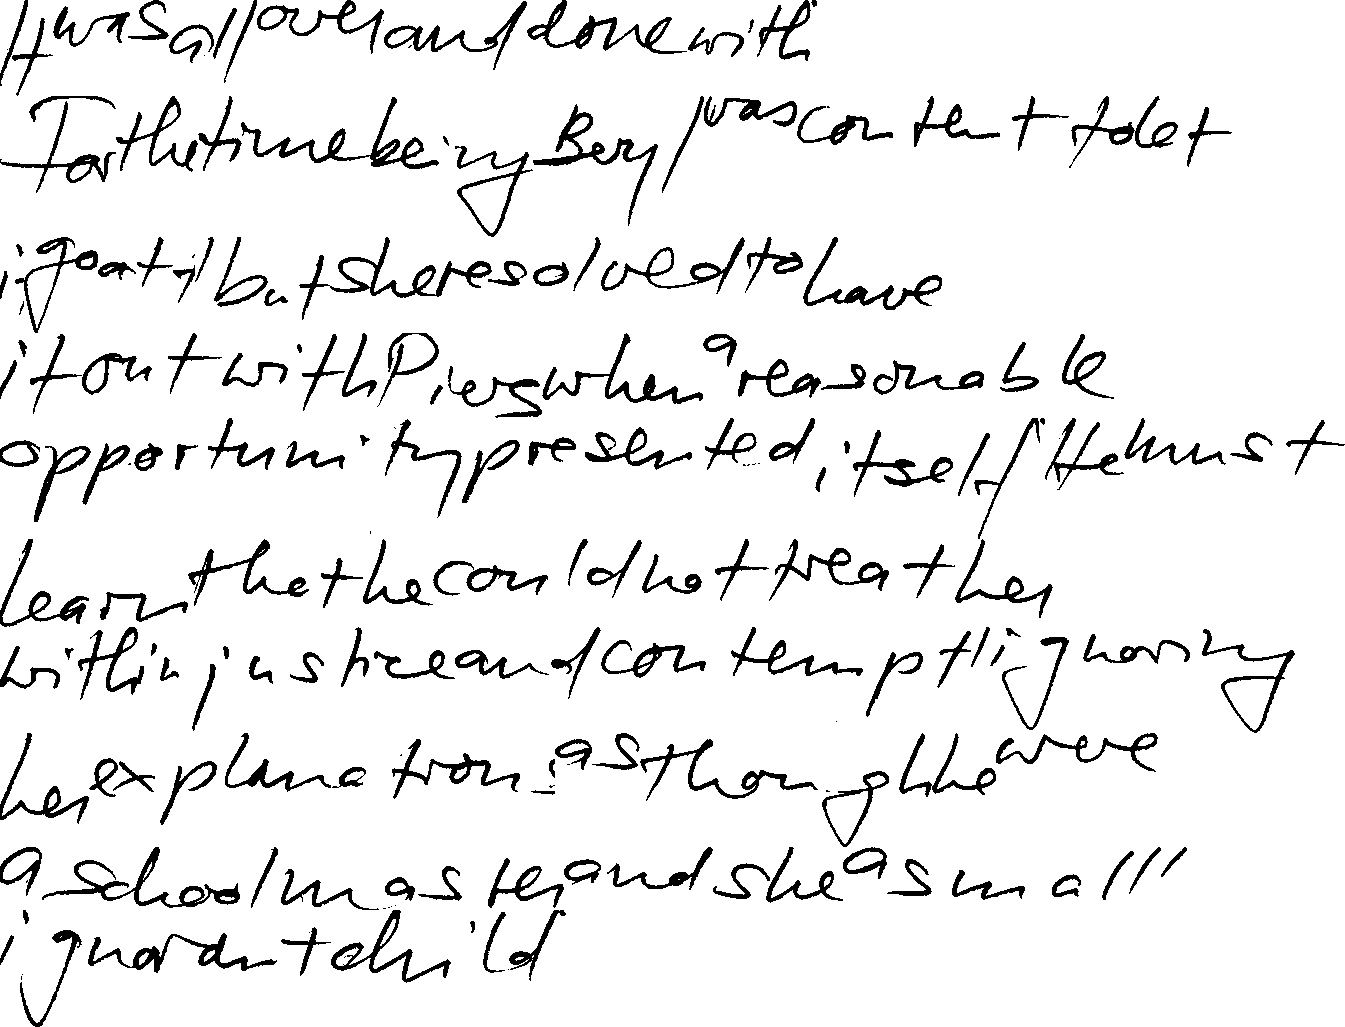 It was all over and done with
For the time being Beryl was content to let
it go at it but she resolved to have
it out with Piers when a reasonable
opportunity presented itself He must
learn that he could not treat her
with injustice and contempt ignoring
her explanations as though he were
a schoolmaster and she a small
ignorant child